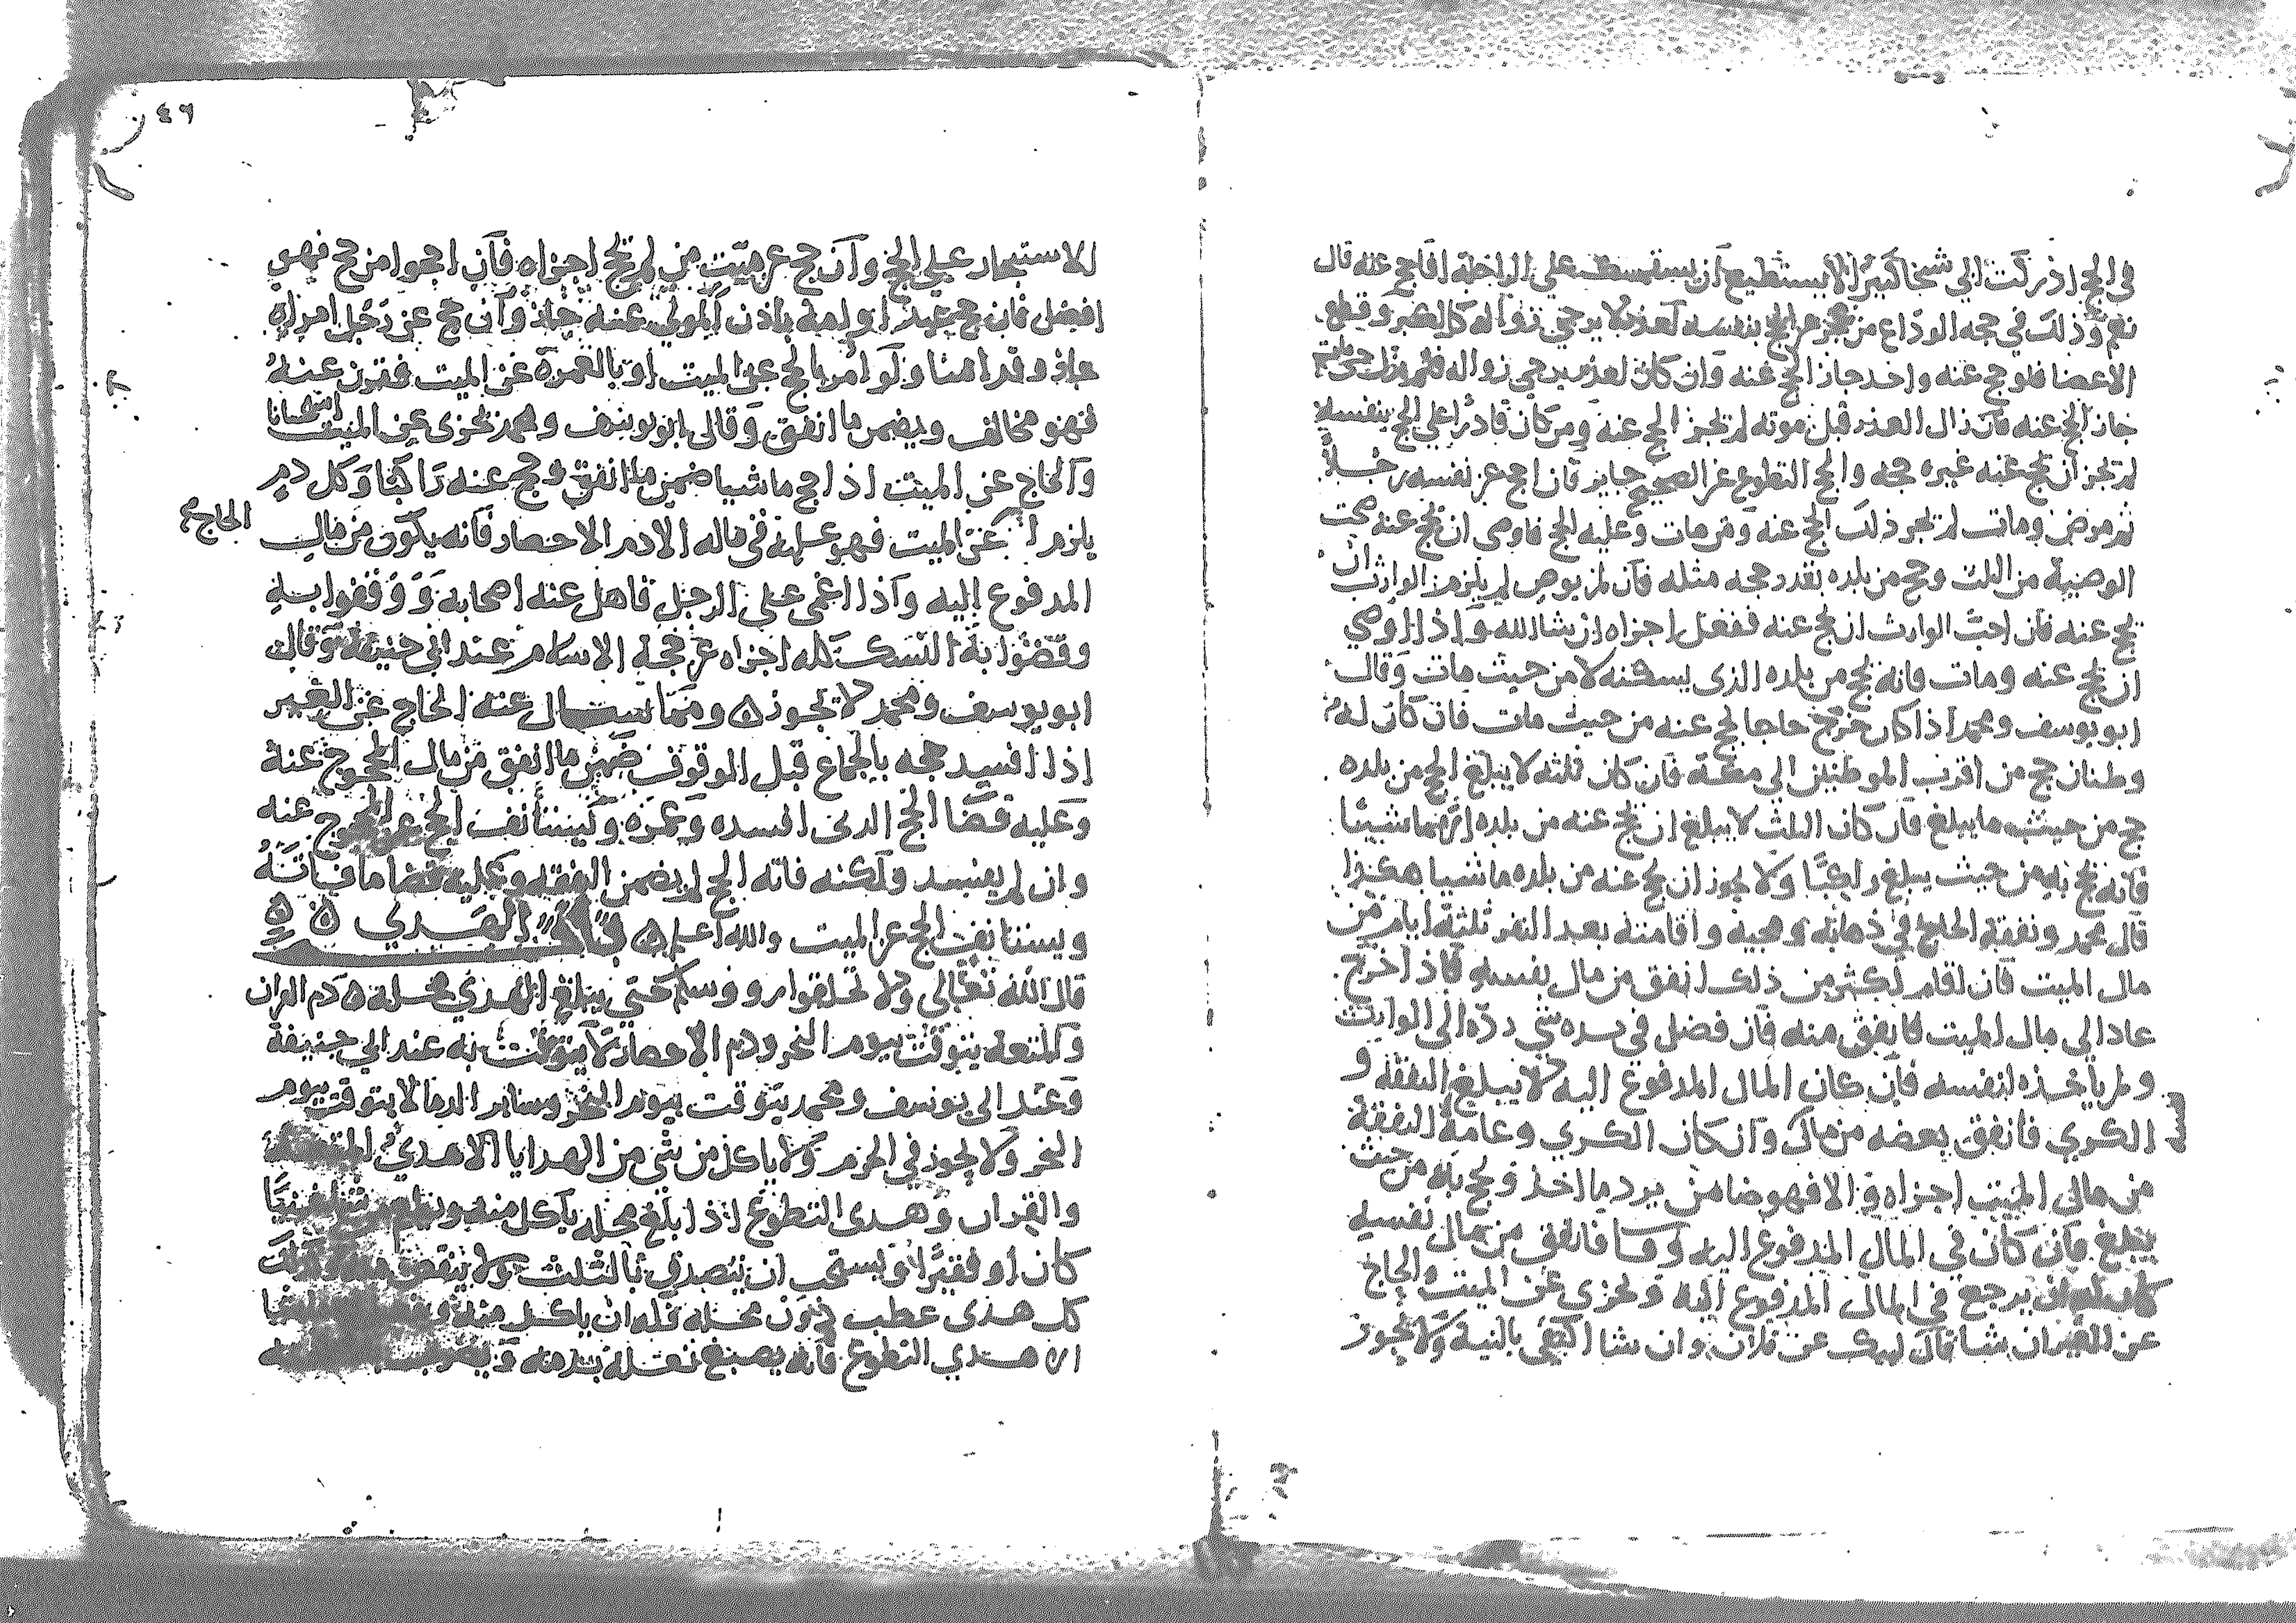 في الحج اذركت ابي شيخا كبيرا لا يستطيع ان يستمسك على الراحلة افاحج عنه قال
نعم وذلك في حجه الوداع من عجز عن الحج بنفسه لعذر لا يرجى زواله كالكبر وقطع
الاعضا فلو حج عنه واحد جاز الحج عنه وان كان لعذر يرجى زواله فلم يزل حتى مات
جاز الحج عنه فان زال العذر قبل موته لم تجز الحج عنه ومن كان قادرا على الحج بنفسه
لم تجز ان يحج عنه غيره حجه والحج التطوع عن الصحيح جايز فان احج عن نفسه رجلا
ثم مرض ومات لم تجز ذلك الحج عنه ومن مات وعليه الحج فاوصى ان يحج عنه صحت
الوصية من الثلث وحج من بلده بقدر حجه مثله فان لم يوص لم يلزم الوارث ان
يحج عنه فان احب الوارث ان يحج عنه ففعل اجزاه ان شا الله واذا اوصي
ان يحج عنه ومات فانه يحج من بلده الذى يسكنه لا من حيث مات وقال
ابو يوسف ومحمد اذا كان خرج حاجا يحج عنه من حيث مات فان كان له
وطنان حج من اقرب الموطنين الى مكة فان كان ثلثه لا يبلغ الحج من بلده
حج من حيث ما يبلغ فان كان الثلث لا يبلغ ان يحج عنه من بلده الا ماشيا
فانه يحج به من حيث يبلغ راكبا ولا يجوز ان يحج عنه من بلده ماشيا هكذا
قال محمد ونفقة الحاج في ذهابه ومجيه واقامته بعد النفر ثلثة ايام من
مال الميت فان اقام اكثر من ذلك انفق من مال نفسه فاذا خرج
عاد الى مال الميت فانفق منه فان فضل في يده شي رده الى الوارث
ولم ياخذه لنفسه فان كان المال المدفوع اليه لا يبلغ النفقة و
الكري فانفق بعضه من ماله وان كان الكري وعامة النفقة
من مال الميت اجزاه والا فهو ضامن يرد ما اخذ ويحج به من حيث
يبلغ فان كان في المال المدفوع اليه وفا فانفق من مال نفسه
كان له ان يرجع في المال المدفوع اليه وتجزي عن الميت والحاج
عن الغير ان شا قال لبيك عن فلان وان شا اكتفى بالنية ولا تجوز
٤٦
الاستيجار على الحج وان حج عن ميت من لم يحج اجزاه فان احجوا من حج فهو
افضل فان حج عبد او امة باذن المولى عنه جاز وان حج عن رجل امراة
جاز وقد اسا ولو امر بالحج عن الميت او بالعمرة عن الميت فقرن عنه
فهو مخالف ويضمن ما انفق وقال ابو يوسف ومحمد تجزى عن الميت استحسانا
والحاج عن الميت اذا حج ماشيا ضمن ما انفق وحج عنه راكبا وكل دم
يلزم الحاج عن الميت فهو عليه في ماله الا دم الاحصار فانه يكون من مال
المدفوع اليه واذا اغمى على الرجل فاهل عنه اصحابه ووقفوا به
وقضوا به النسك كله اجزاه عن حجة الاسلام عند ابي حنيفة وقال
ابو يوسف ومحمد لا تجوز ه ومما يسال عنه الحاج عن الغير
اذا افسد حجه بالجماع قبل الوقوف ضمن ما انفق من مال المحجوج عنه
وعليه قضا الحج الذى افسده وعمرة ويستانف الحج عن المحجوج عنه
وان لم يفسد ولكنه فاته الحج لم يضمن النفقه وعليه قضا ما فاته
ويستانف الحج عن الميت والله اعلم ه باب الهدي ه ه
قال الله تعالى ولا تحلقوا روسكم حتى يبلغ الهدي محله ه دم القران
والمتعة يتوقت بيوم النحر ودم الاحصار لا يتوقت به عند ابي حنيفة
وعند ابى يوسف ومحمد يتوقت بيوم النحر وساير الدما لا يتوقت بيوم
النحر ولا يجوز في الحرم ولا ياكل من شى من الهدايا الا هدي المتعة
والقران وهدى التطوع اذا بلغ محله ياكل منه ويطعم غنيا
كان او فقيرا ويستحب ان يتصدق بالثلث ولا ينقص
كل هدى عطب دون محله فله ان ياكل منه
الا هدي التطوع فانه يصبغ نعله بدمه ويضرب